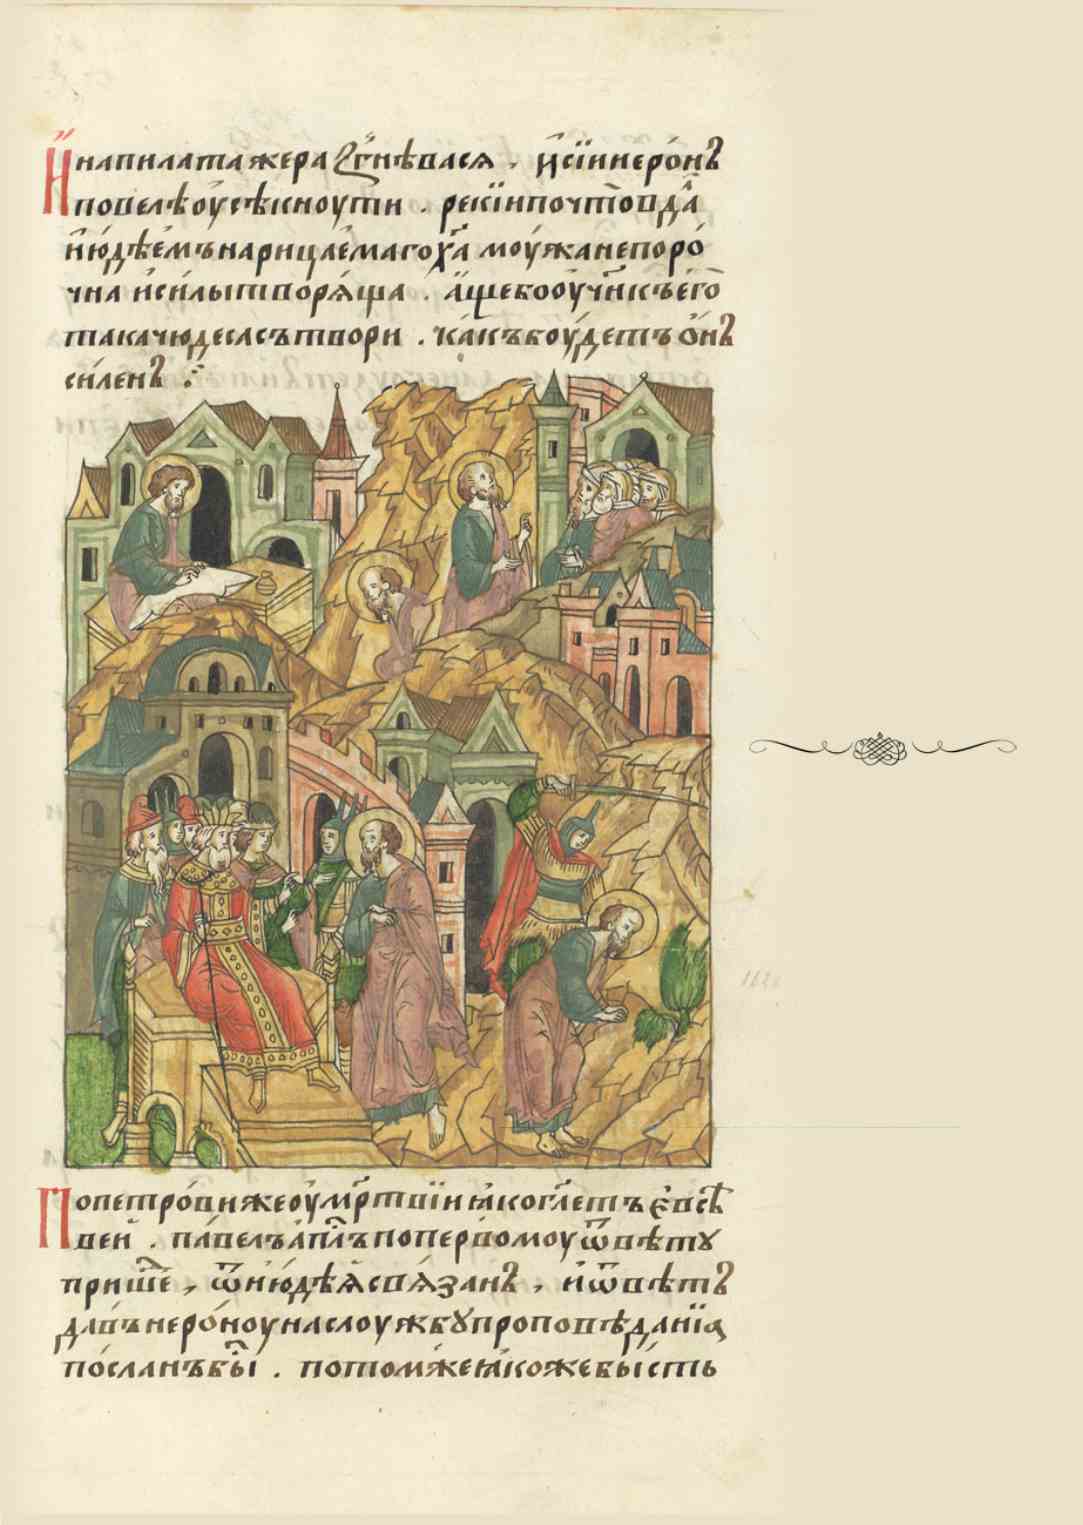 И҆ напилата же разгнѣвася . и҆ сїи нерѡ́нъ
повелѣ оу҆сѣкноути . рекїи почто̀ вда̀
и҆ю̀дѣѐмъ нарица́емаго х҃а моу́жа непоро́
чна и҆си́лы творѧ́ща . а҆́ще бо оу҆чн҃къ его̀
така чюдеса сътвори . ка́къ боу́детъ ѻ҆́нъ
си́ленъ :
По петро́ви же оу҆мр҃твїи ꙗ҆́ко гл҃етъ є҆всѣ́
вей . па́велъ а҆пл҃ъ по пе́рвомоу ѿвѣ́тꙋ
прише́ , ѿ и҆ю̀дѣ́ѧ свѧ́занъ , и҆ ѿвѣ́тъ
да́въ неро́ноу на слоу́жбꙋ проповѣ́данїꙗ
по́сланъ бы́ . пото́м же ꙗ҆́коже бы́сть